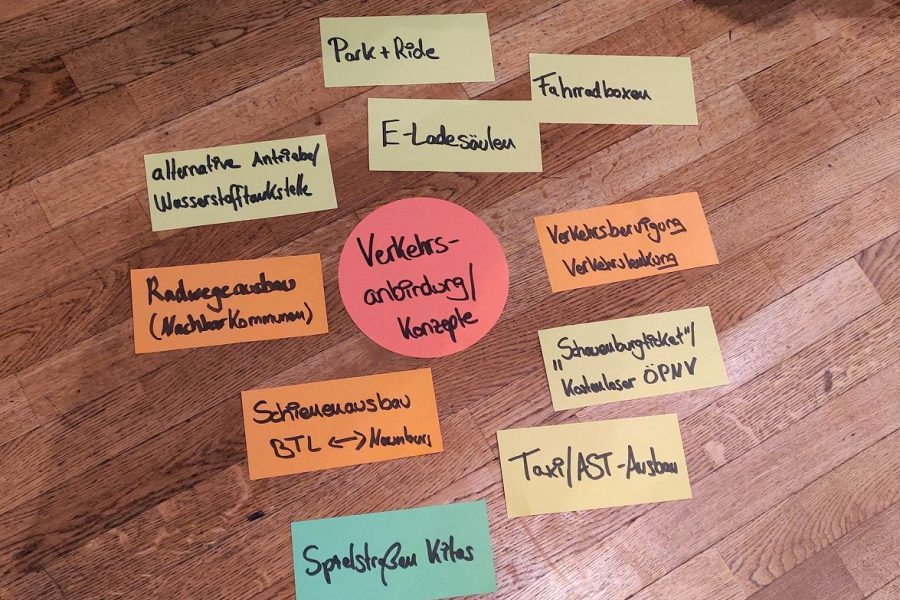 Park + Ride
Fahrradboxen
E-Ladesäulen
alternative Antriebe/
Wasserstofftankstelle
Verkehrs-
anbindung/
Konzepte
Verkehrsberuigung
Verkehrslenkung
Radwegeausbau
(Nachbarkommunen)
„Schauenburgticket"/
Kostenloser ÖPNV
Schienenausbau
BTL <-> Naumburg
Taxi/AST-Ausbau
Spielstraßen Kitas